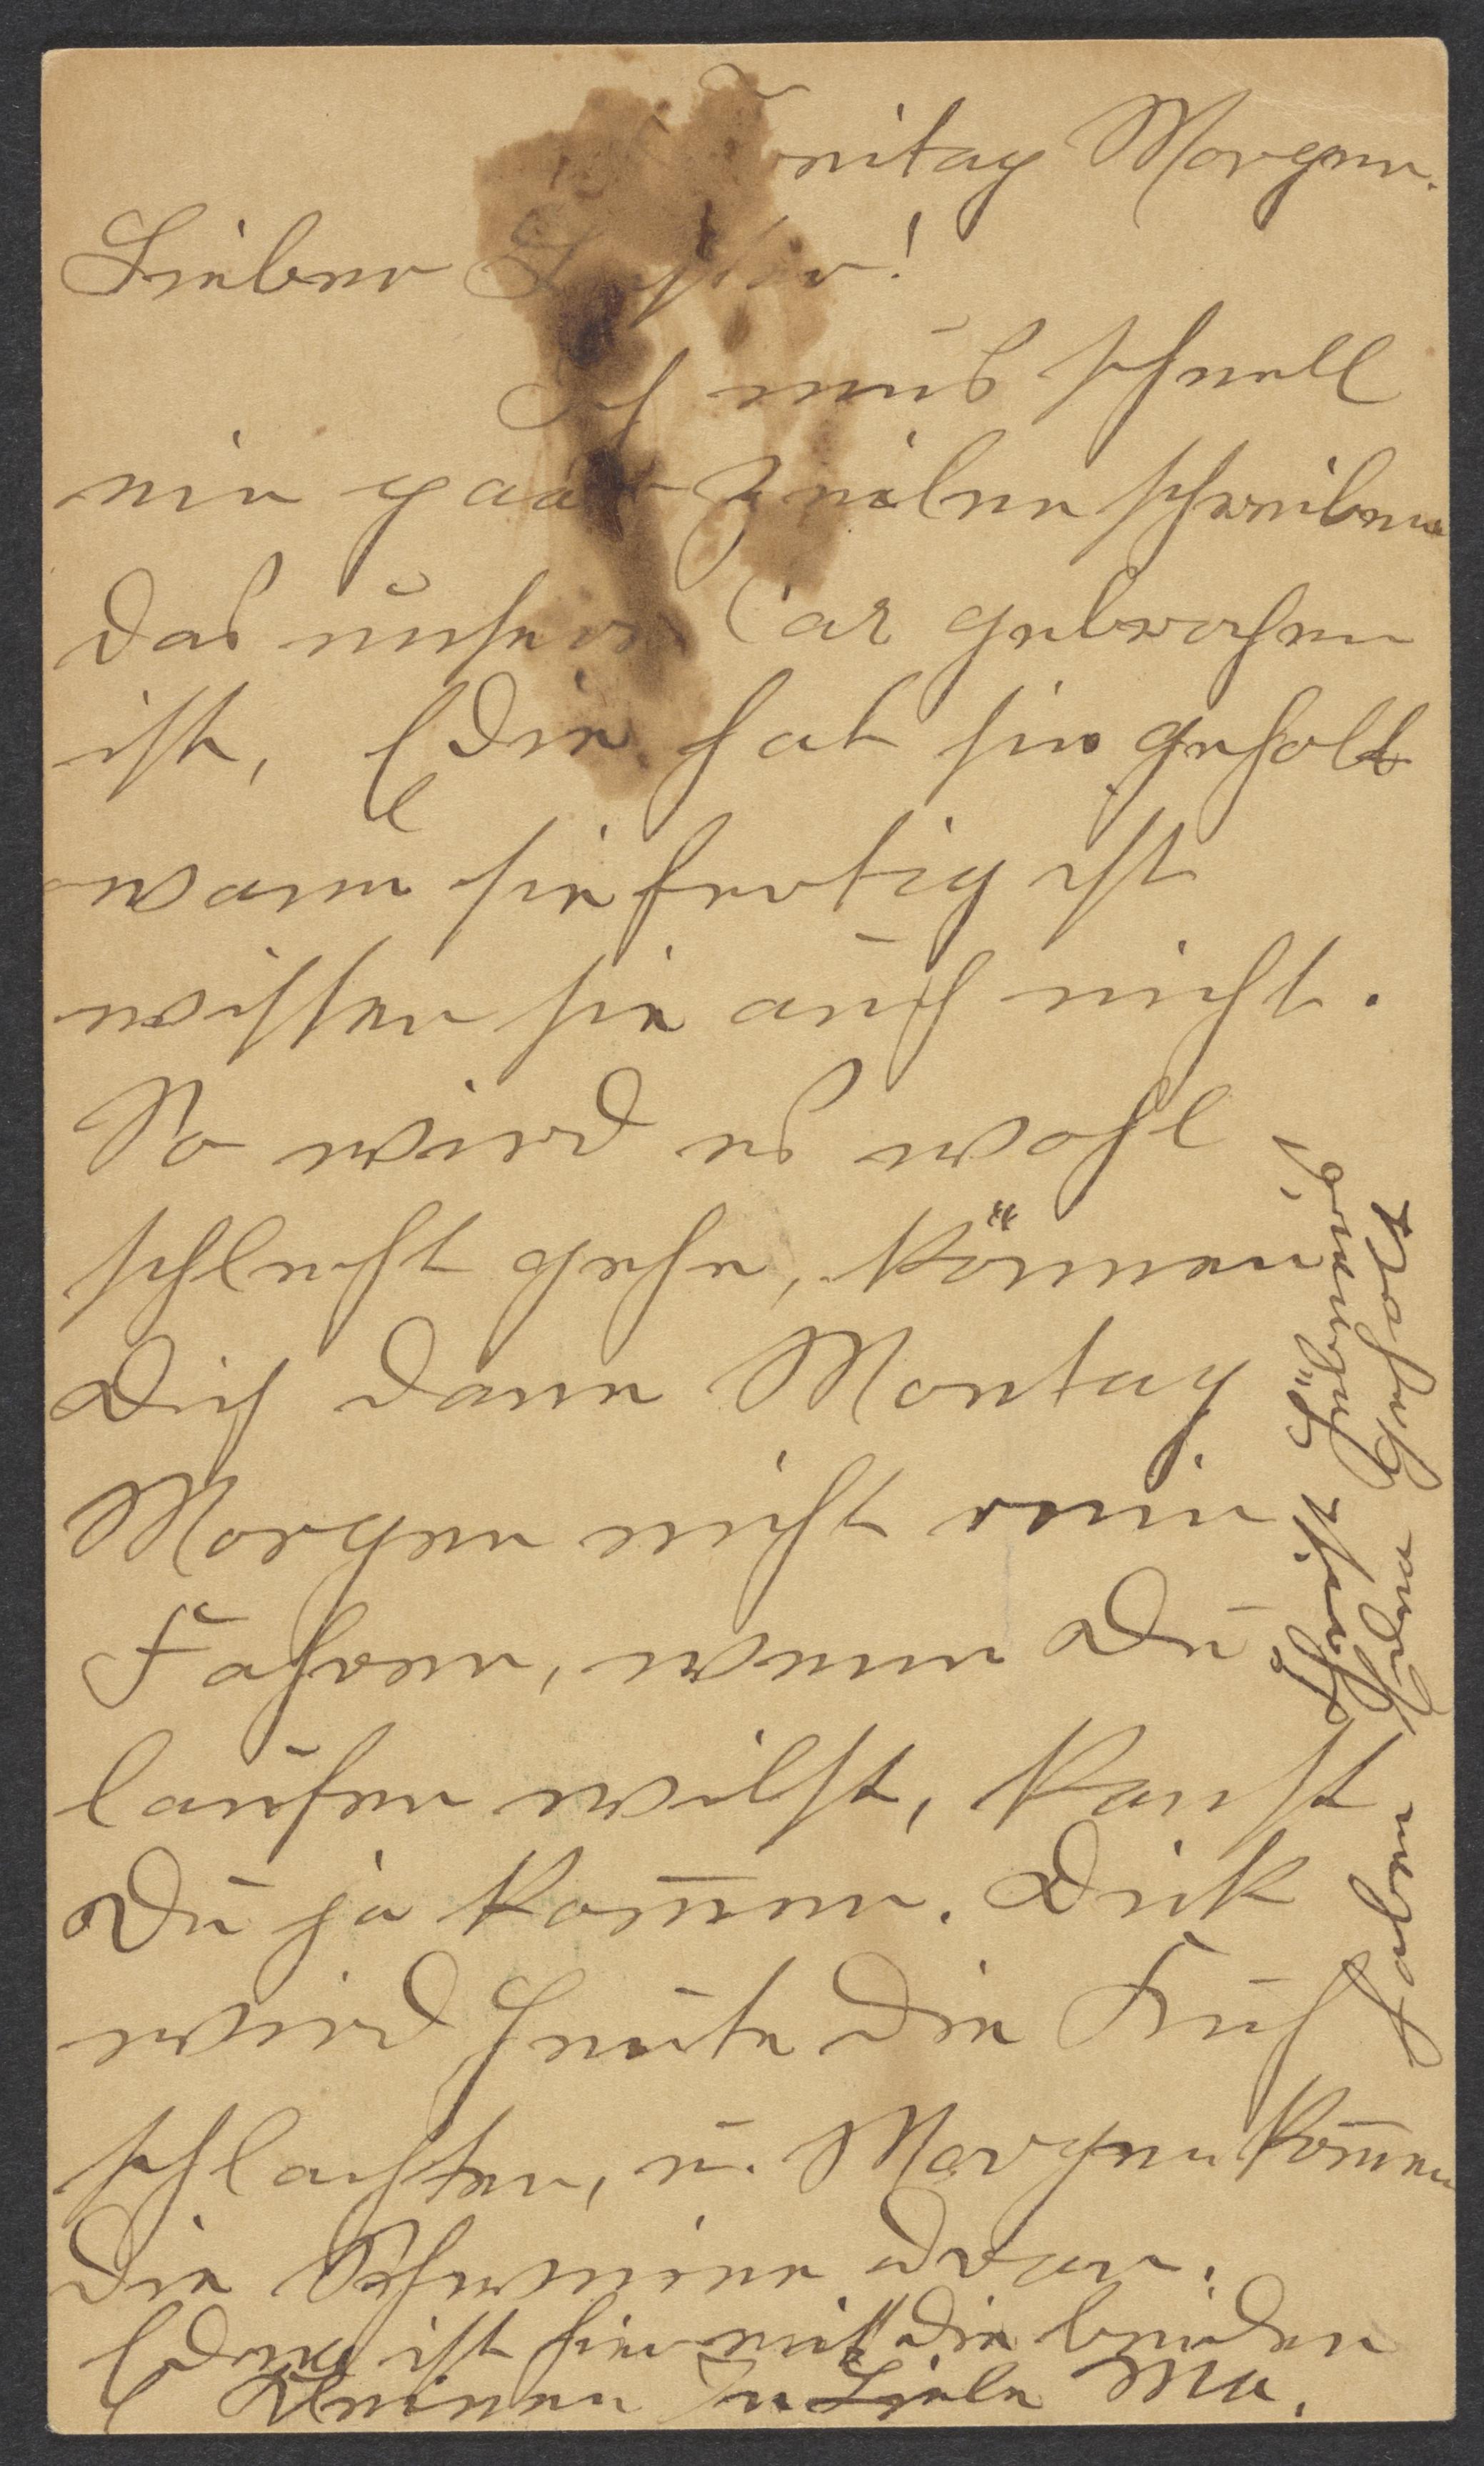 Freitag Morgen.
Lieber
Ich muß schnell
ein paar Zeilen schreiben
das unsere Car gebrochen
ist, Edie hat sie geholt
wann sie fertig ist
wissen sie auch nicht.
So wird es wohl
schlecht gehe, können
Dich dann Montag
Morgen nicht rein
Fahren, wenn Du
laufen willst, kanst
Du ja kommen. Dick
wird heute die Kuh
schlachten, u. Morgen kommen
die Schweine dran.
Edna ist hier mit die beiden
Kleinen In Liebe Ma.
haben